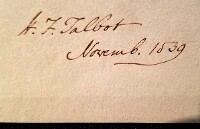 H. F. Talbot
Novemb. 1839